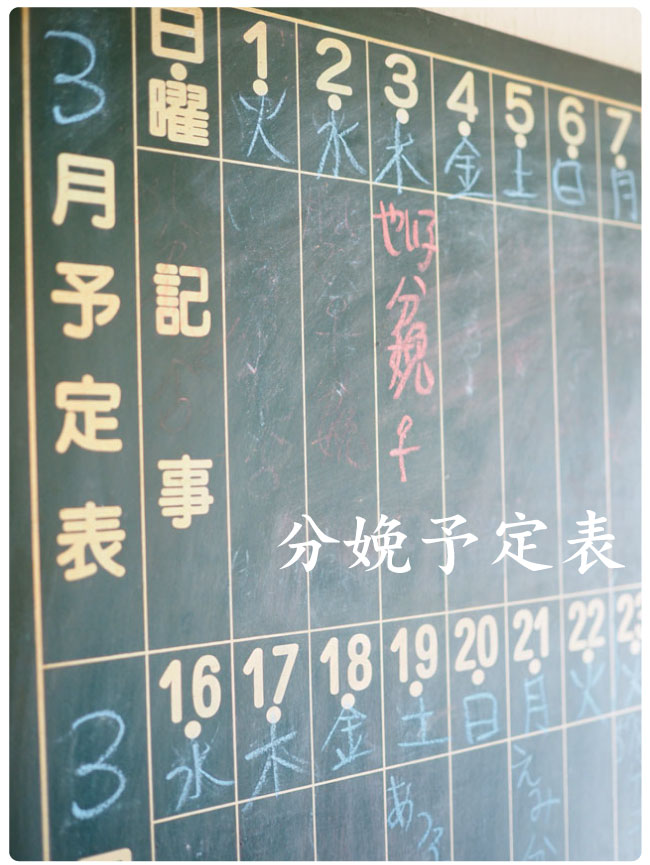 3月予定表
日・曜
1 2 3 4 5 6 7
火 水 木 金 土 日 月
記事
分娩
♀
分娩予定表
3
16 17 18 19 20 21 22 23
水 木 金 土 日 月 火
えみか